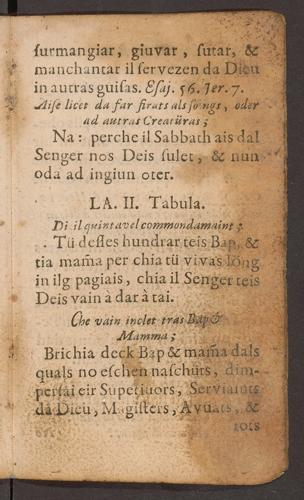 surmangiar, giuvar, sutar, &
manchantar il servezen da Dieu
in autras guisas. Esaj. 56. Jer. 7.
Aise licet da far firats als songs, oder
ad autras Creatüras;
Na: perche il Sabbath ais dal
Senger nos Deis sulet, & nun
oda ad ingiun oter.
LA. II. Tabula.
Di il quintavel commondamaint;
Tü destes hundrar teis Bap, &
tia mam̃a per chia tü vivas long
in ilg pagiais, chia il Senger teis
Deis vain à dar à tai.
Che vain inclet tras Bap &
Mamma;
Brichia deck Bap & mam̃a dals
quals no eschen naschüts,
eir Superiuors, Serviaints
da Dieu, Magisters, Avuats, &
tots